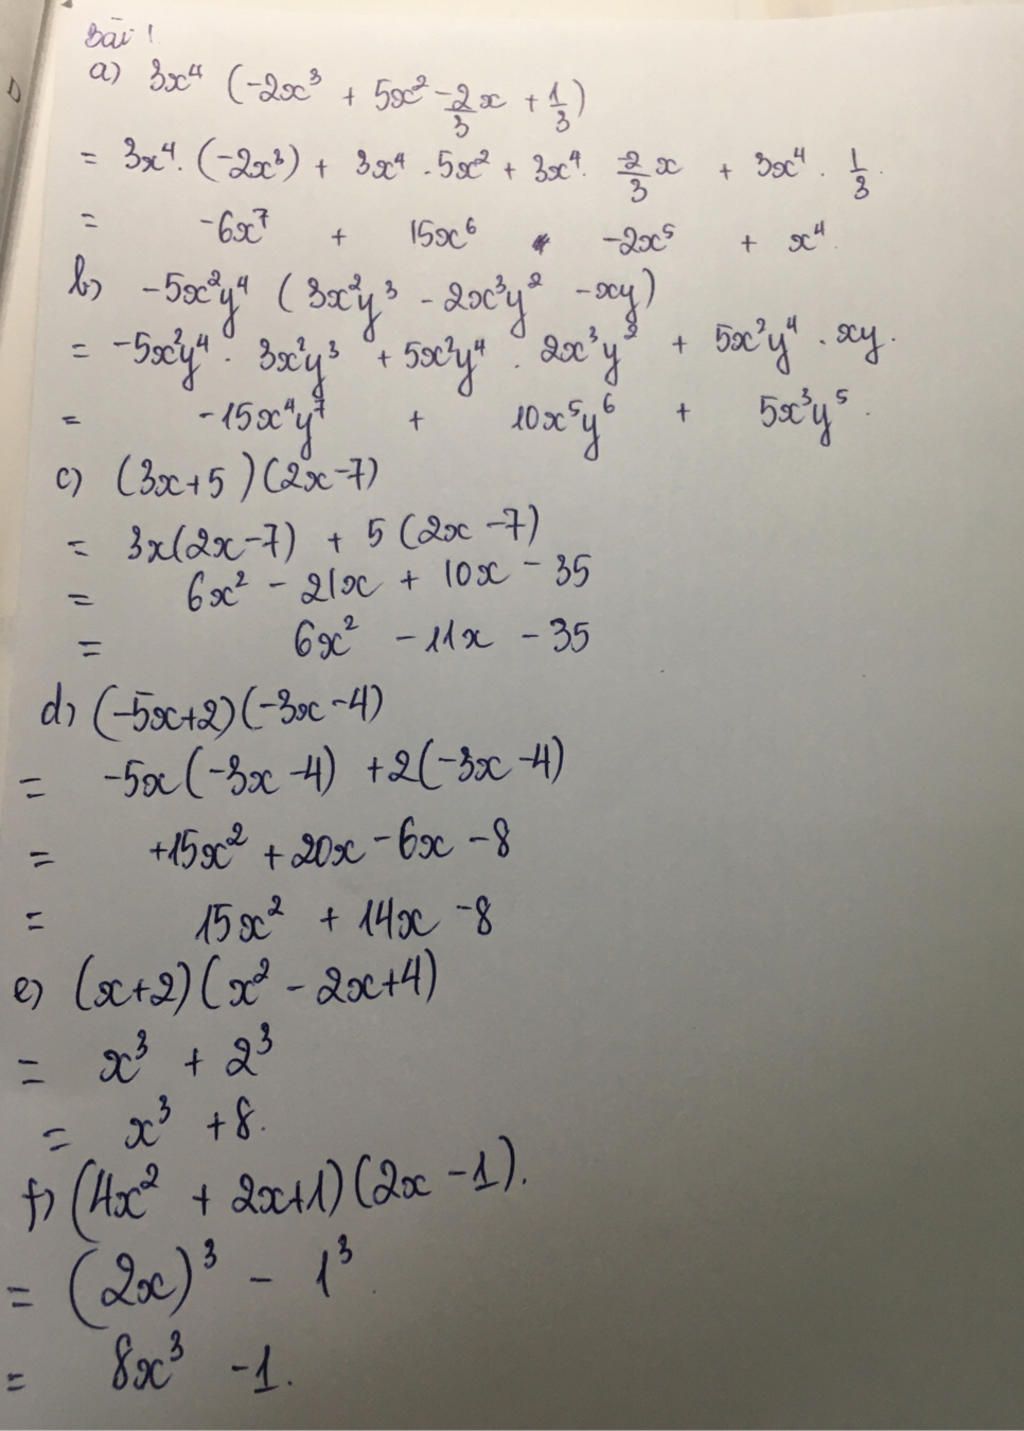 Bài 1
a) 3x⁴ (-2x³ + 5x² - 2/3 x + 1/3)
= 3x⁴ . (-2x³) + 3x⁴ . 5x² + 3x⁴ . -2/3 x + 3x⁴ . 1/3 .
= -6x⁷ + 15x⁶ -2x⁵ + x⁴.
b) -5x²y⁴ (3x²y³ - 2x³y² - xy)
= -5x²y⁴ . 3x²y³ + 5x²y⁴ . 2x³y² + 5x²y⁴ . xy.
= -15x⁴y⁷ + 10x⁵y⁶ + 5x³y⁵ .
c) (3x+5)(2x-7)
= 3x(2x-7) + 5(2x-7)
= 6x² - 21x + 10x - 35
= 6x² - 11x - 35
d) (-5x+2)(-3x-4)
= -5x(-3x-4) +2(-3x-4)
= +15x² + 20x - 6x - 8
= 15x² + 14x - 8
e) (x+2)(x² - 2x+4)
= x³ + 2³
= x³ + 8.
f) (4x² + 2x+1)(2x - 1).
= (2x)³ - 1³.
= 8x³ - 1.